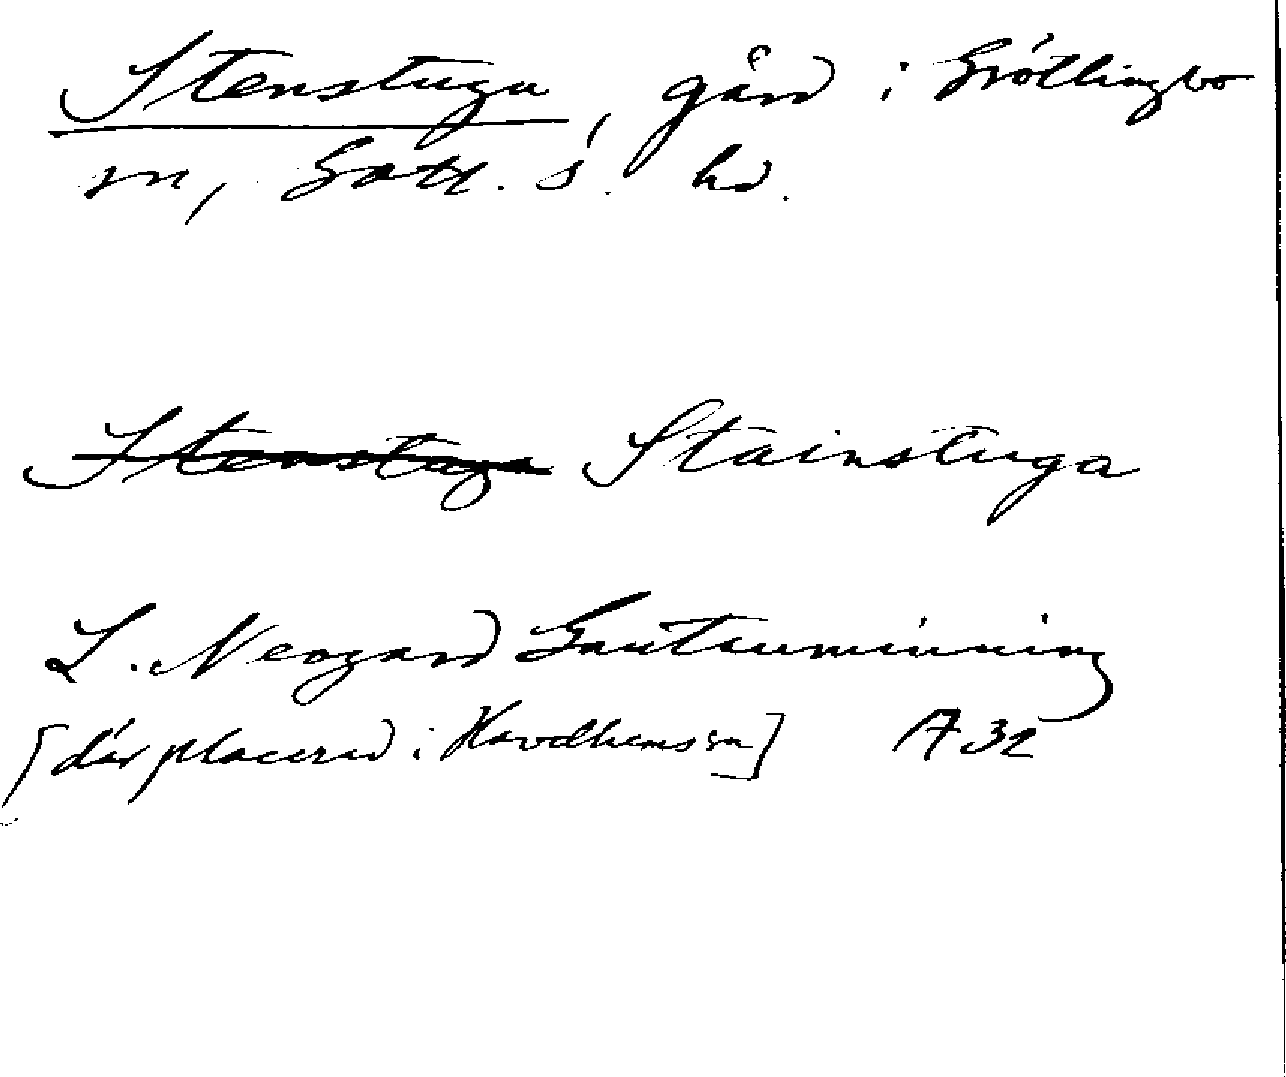 Stenstugu, gård i Grötlingbo
sn, Gotl. s. hd.
Stenstuga Stainstuga
L. Neogard Gautauminning
[där placerad i Havdhems sn] A 32